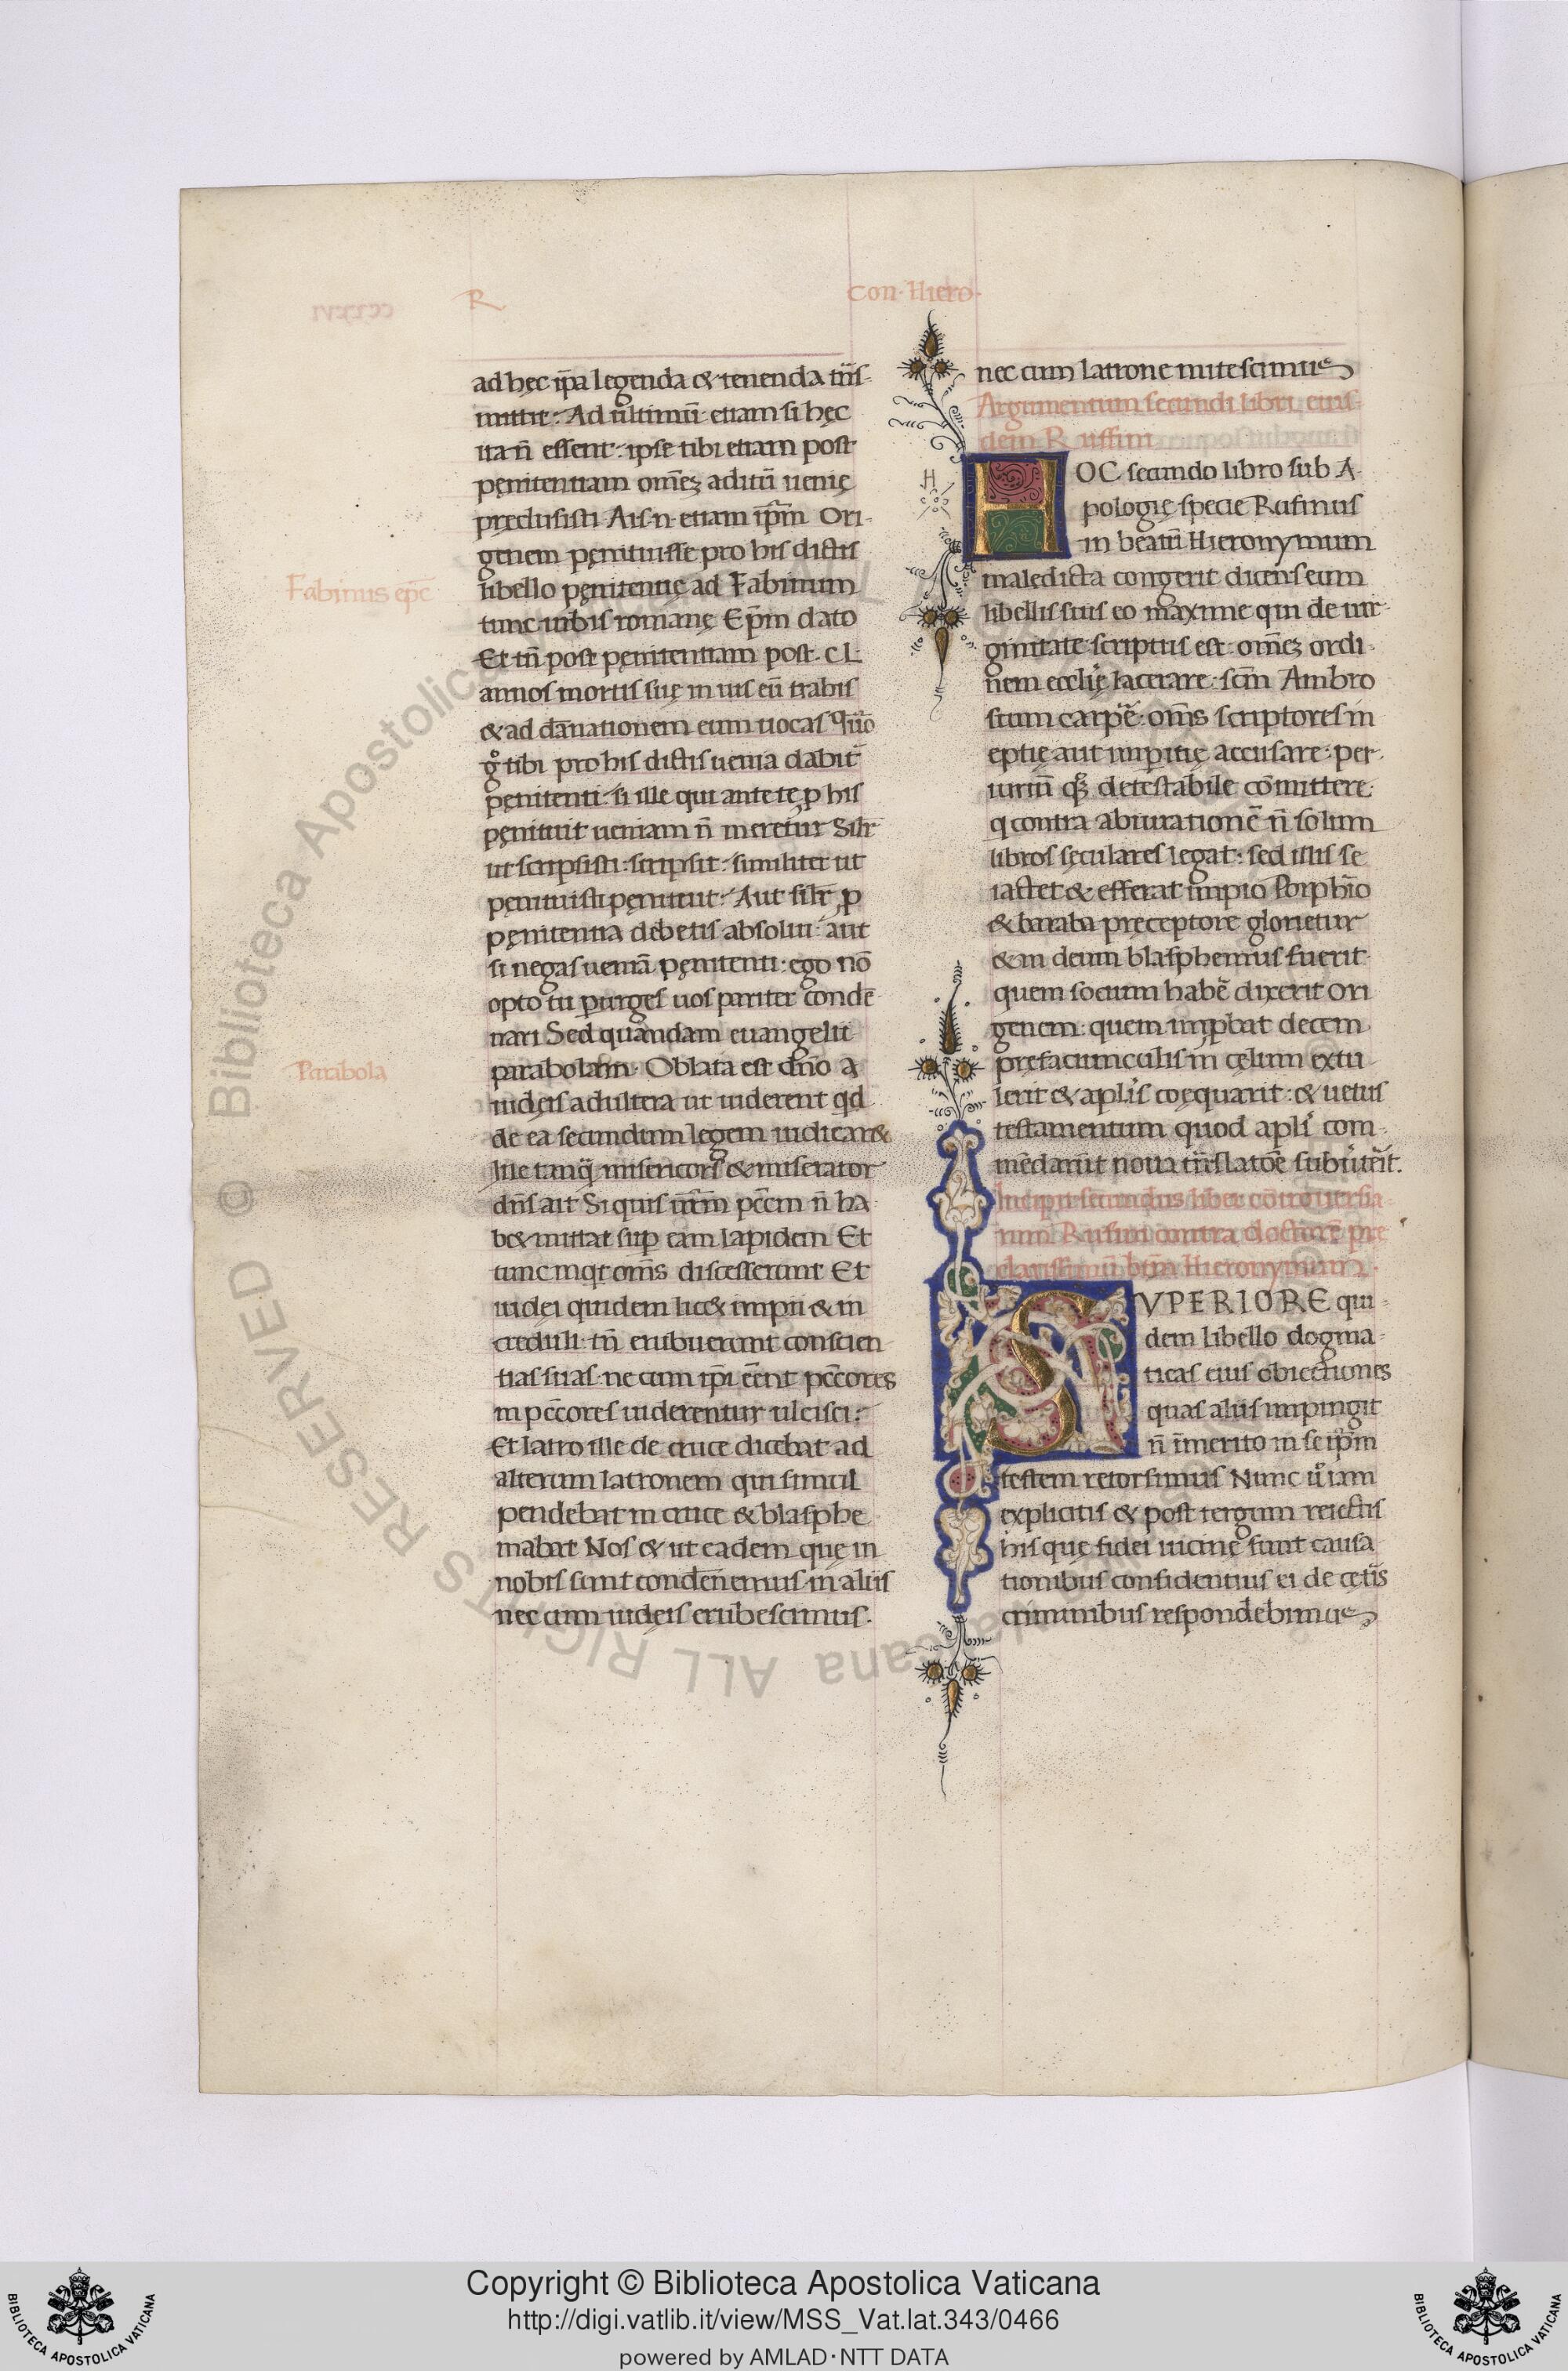 R
Con. Hiero.
ad hęc ip̄a legenda & tenenda trās-
mittit: Ad ultimū etiam si hęc
ita n̄ essent: ipse tibi etiam post
pęnitentiam om̄eꝫ aditū uenię
pręclusisti Ais .n. etiam ip̄m Ori-
genem pęnituisse pro his dictis
libello pęnitentię ad Fabinum
tunc urbis romanę Ep̄m dato
Et tn̄ post pęnitentiam post .CL
annos mortis suę in ius eū trahis
& ad dānationem eum uocas
tibi pro his dictis uenia dabit̄
pęnitenti si ille qui ante te ꝓ his
pęnituit ueniam n̄ meretur Silr̄
ut scripsisti scripsit: similiter ut
pęnituisti pęnituit: Aut silr̄ ꝓ
pęnitentia debetis absolui: aut
si negas ueniā pęnitenti: ego nō
opto tu purges uos pariter condē-
nari Sed quandam euangelii
parabolam. Oblata est dn̄o a
iudęis adultera ut uiderent qd
de ea secundum legem iudicar&
Ille tanq̄ misericors & miserator
dn̄s ait Si quis ur̄m pcc̄m n̄ ha
b& mittat sup eam lapidem Et
tunc inqt om̄s discesserunt Et
iudęi quidem lic& impii & in
creduli: tn̄ erubuerunt conscien
tias suas ne cum ip̄i ēent pcc̄ores
in pcc̄ores uiderentur ulcisci:
Et latro ille de cruce dicebat ad
alterum latronem qui simul
pendebat in cruce & blasphe
mabat Nos & ut eadem quę in
nobis sunt condēnemus in aliis
nec cum iudęis erubescimus.
Fabinus ep̄c
Parabola
nec cum latrone mitescimus
Argumentum secundi libri eius-
dem Ruffini
HOC secundo libro sub A-
pologię specie Rufinus
in beatū Hieronymum
maledicta congerit dicens eum
libellis suis eo maxime qui de uir-
ginitate scriptus est om̄eꝫ ordi-
nem eccl̄ię lacerare: scm̄ Ambro
sium carpe͛: om̄s scriptores in
eptię aut impitię accusare: per-
iuriū detestabile cōmittere
q contra abiurationē n̄ solum
libros sęculares legat: sed illis se
iactet & efferat impio Porphīo
& baraba pręceptore glorietur
& in deum blasphemus fuerit
quem socium habe͛ dixerit Ori
genem: quem imꝓbat decem
prefaciunculis in cęlum extu
lerit & apl̄is coęquarit: & uetus
testamentum quod apl̄i com-
mēdarūt noua trāslatōe subūtit̄.
Incipit secundus liber cōtrouersia-
rum Rufini contra doctorē pre
clarissimū btm̄ Hieronymum.
SVPERIORE qui-
dem libello dogma-
ticas eius obiectiones
quas aliis impingit
n̄ īmerito in se ip̄m
testem retorsimus Nunc u͛ iam
explicitis & post tergum reiectis
his quę fidei uicinę sunt causa
tionibus confidentius ei de cętīs
criminibus respondebimus
Copyright © Biblioteca Apostolica Vaticana
http://digi.vatlib.it/view/MSS_Vat.lat.343/0466
powered by AMLAD·NTT DATA
BIBLIOTECA APOSTOLICA VATICANA
BIBLIOTECA APOSTOLICA VATICANA
© Biblioteca Apostolica Vaticana ALL RIGHTS RESERVED